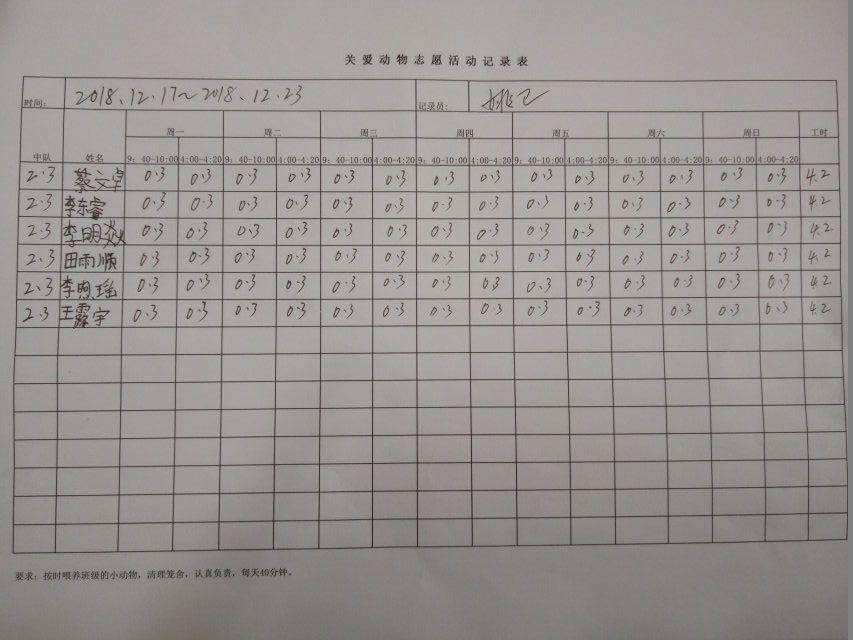 关爱动物志愿活动记录表
时间: 2018.12.17~2018.12.23 记录员:
周一 周二 周三 周四 周五 周六 周日 工时
中队 姓名 9:40-10:00 4:00-4:20 9:40-10:00 4:00-4:20 9:40-10:00 4:00-4:20 9:40-10:00 4:00-4:20 9:40-10:00 4:00-4:20 9:40-10:00 4:00-4:20 9:40-10:00 4:00-4:20
2.3 蔡文卓 0.3 0.3 0.3 0.3 0.3 0.3 0.3 0.3 0.3 0.3 0.3 0.3 0.3 0.3 4.2
2.3 李东睿 0.3 0.3 0.3 0.3 0.3 0.3 0.3 0.3 0.3 0.3 0.3 0.3 0.3 0.3 4.2
2.3 李明焱 0.3 0.3 0.3 0.3 0.3 0.3 0.3 0.3 0.3 0.3 0.3 0.3 0.3 0.3 4.2
2.3 田雨顺 0.3 0.3 0.3 0.3 0.3 0.3 0.3 0.3 0.3 0.3 0.3 0.3 0.3 0.3 4.2
2.3 李煦瑶 0.3 0.3 0.3 0.3 0.3 0.3 0.3 0.3 0.3 0.3 0.3 0.3 0.3 0.3 4.2
2.3 王露宇 0.3 0.3 0.3 0.3 0.3 0.3 0.3 0.3 0.3 0.3 0.3 0.3 0.3 0.3 4.2
要求: 按时喂养班级的小动物, 清理笼舍, 认真负责, 每天40分钟。